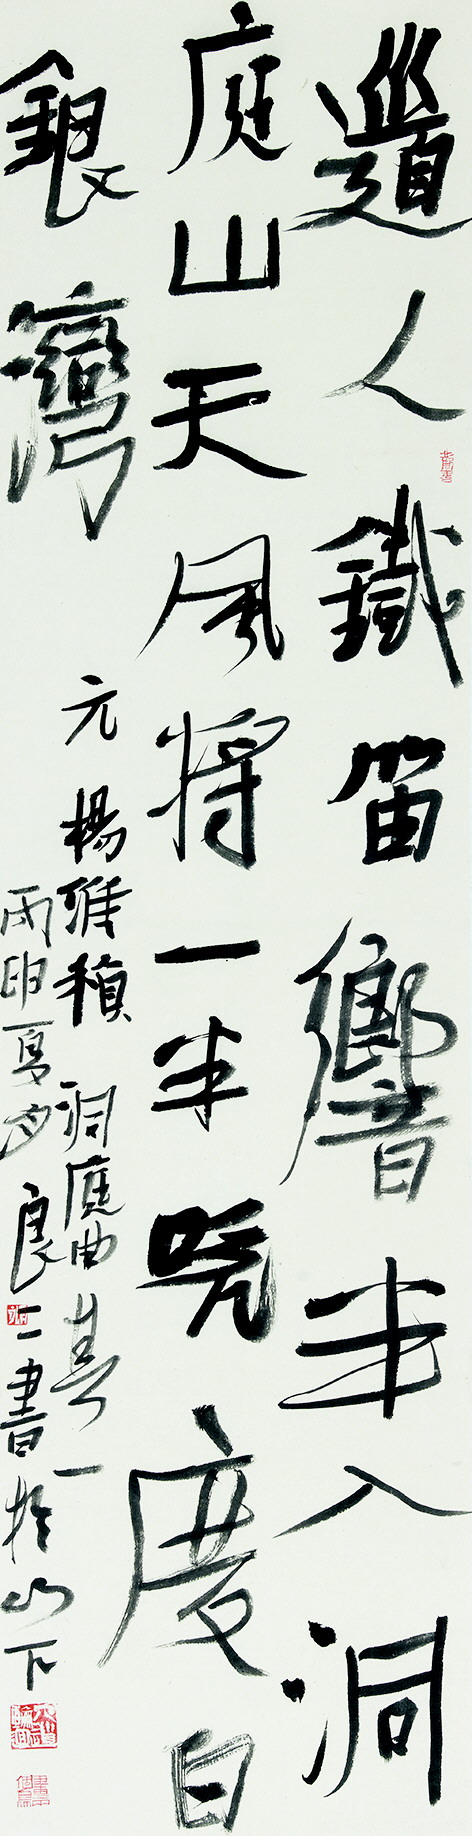 道人鐵笛響半入洞
庭山天風將一半吹度白
銀灣
元楊維楨洞庭曲一
丙申夏月良二書於山下